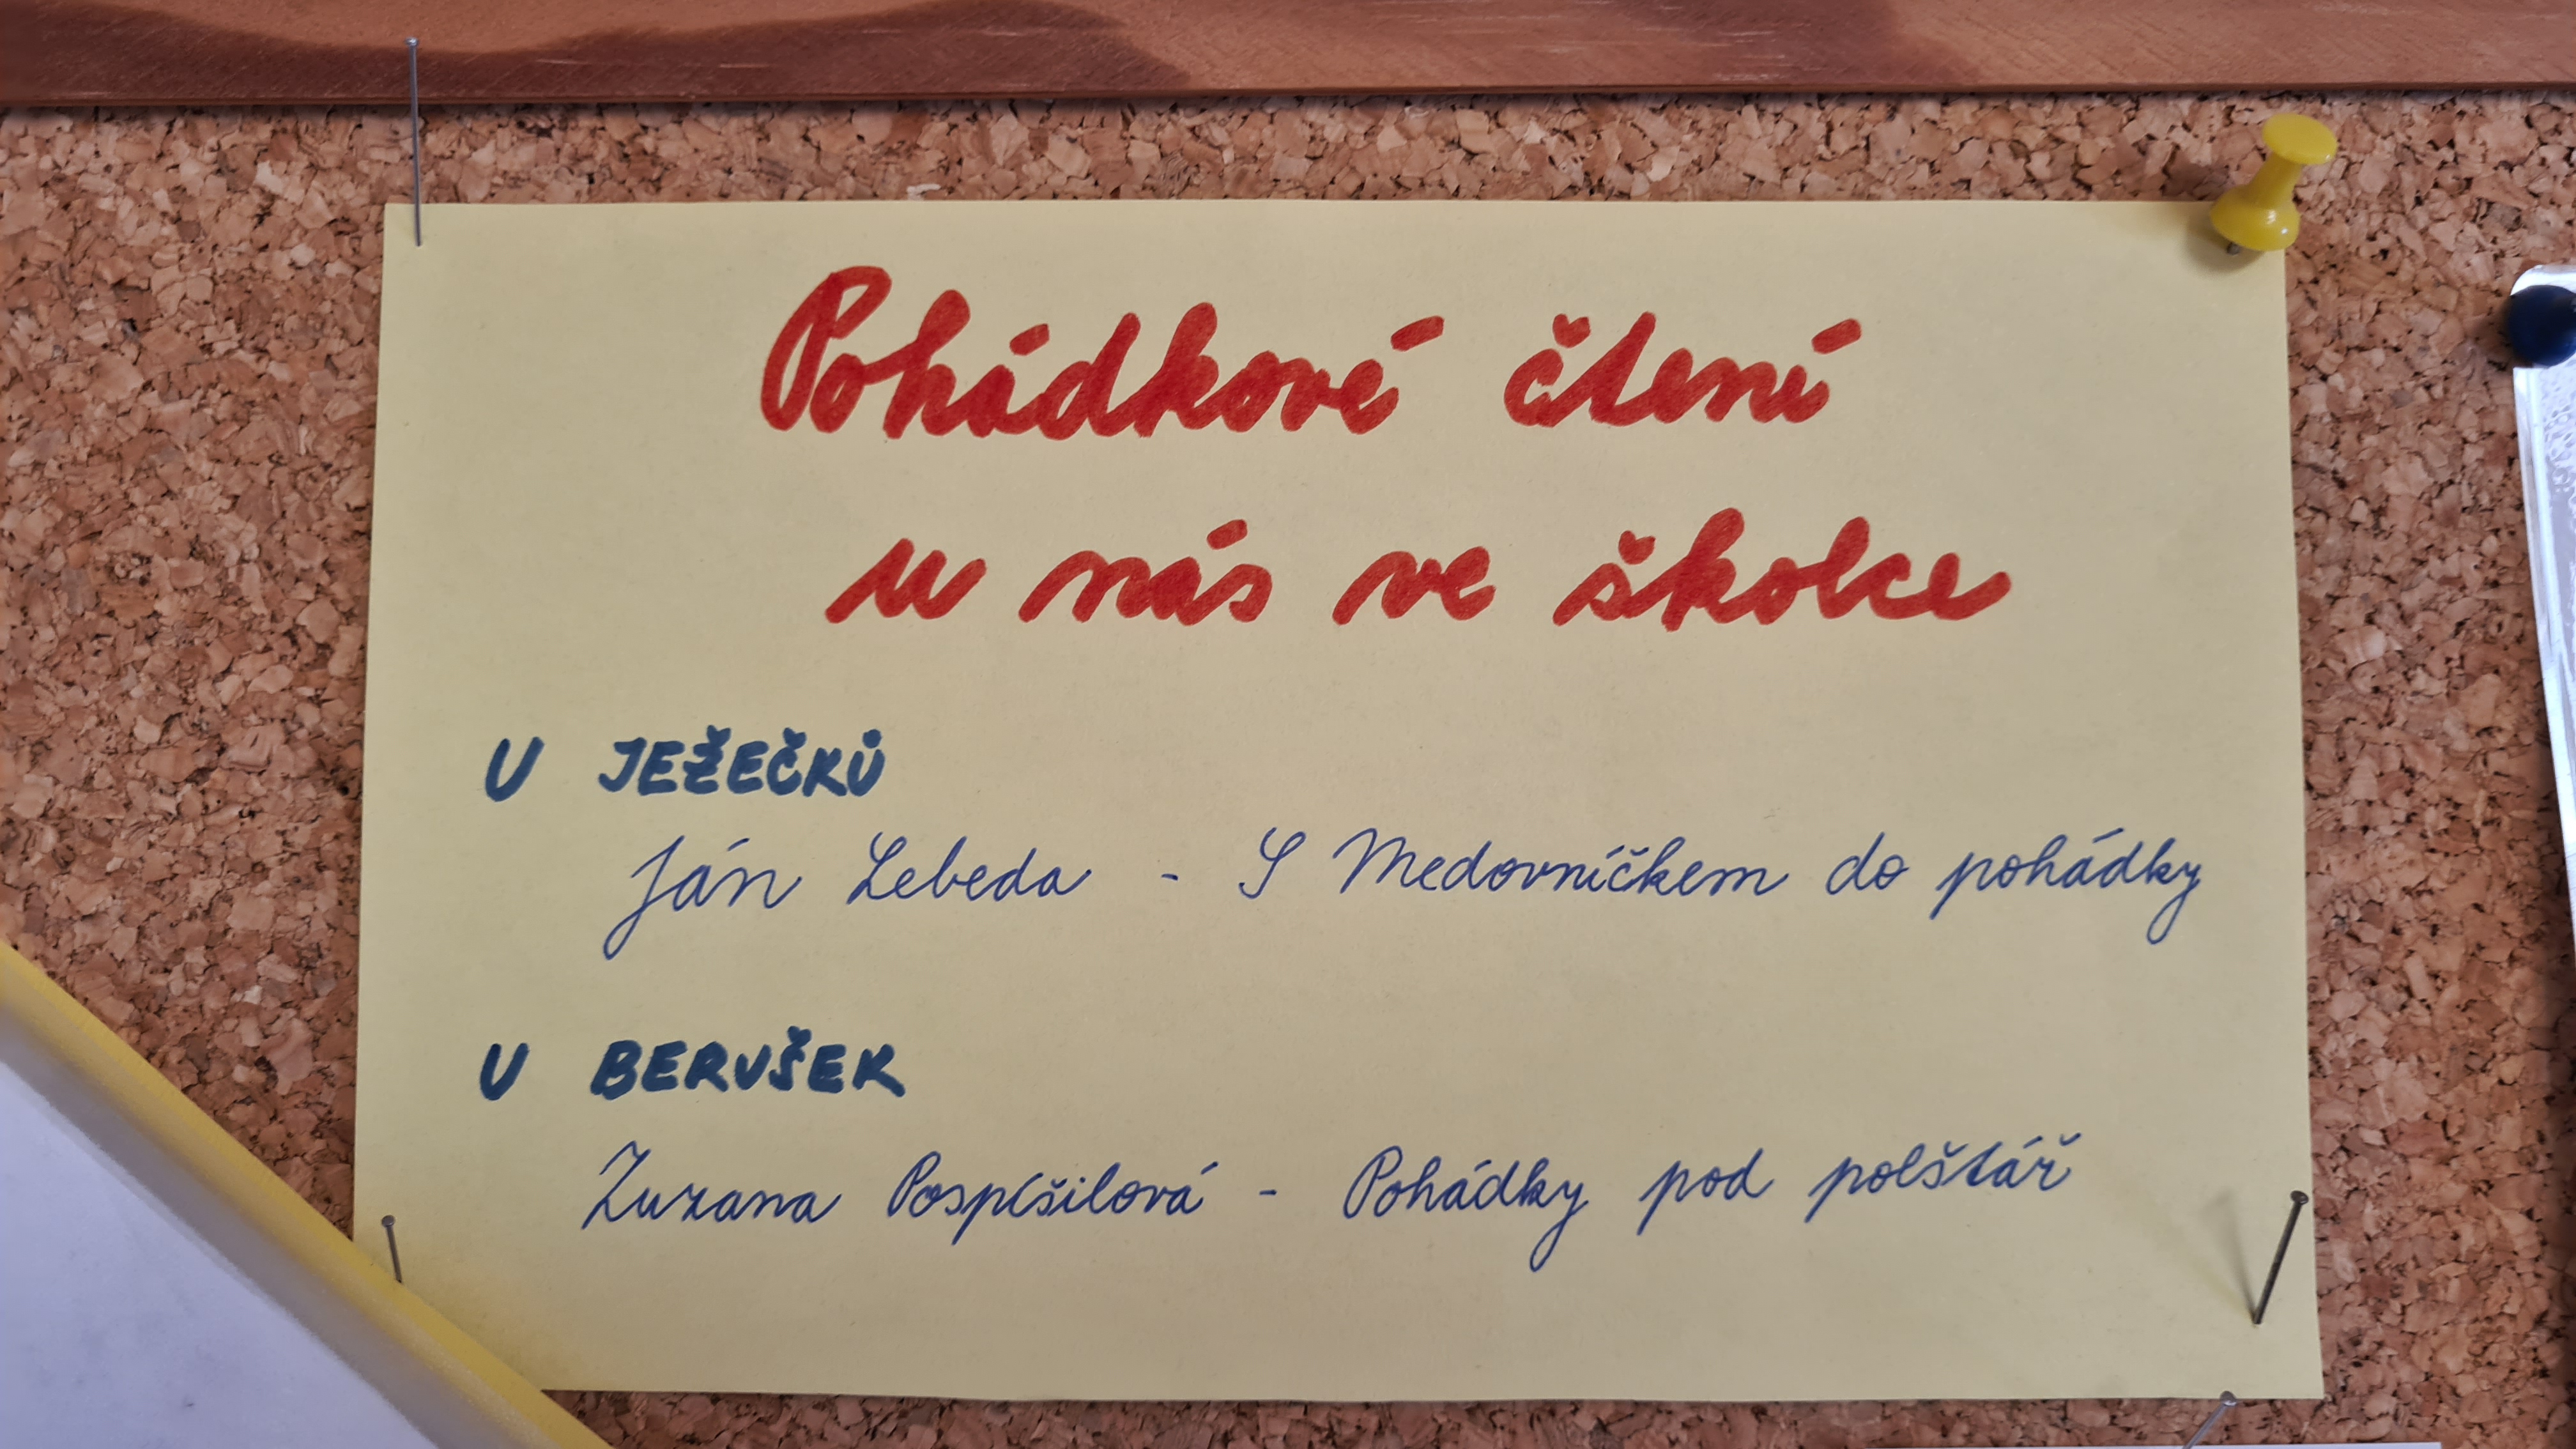 Pohádkové čtení
u nás ve školce
U JEŽEČKŮ
Ján Lebeda - S Medovníčkem do pohádky
U BERUŠEK
Zuzana Pospíšilová - Pohádky pod polštář